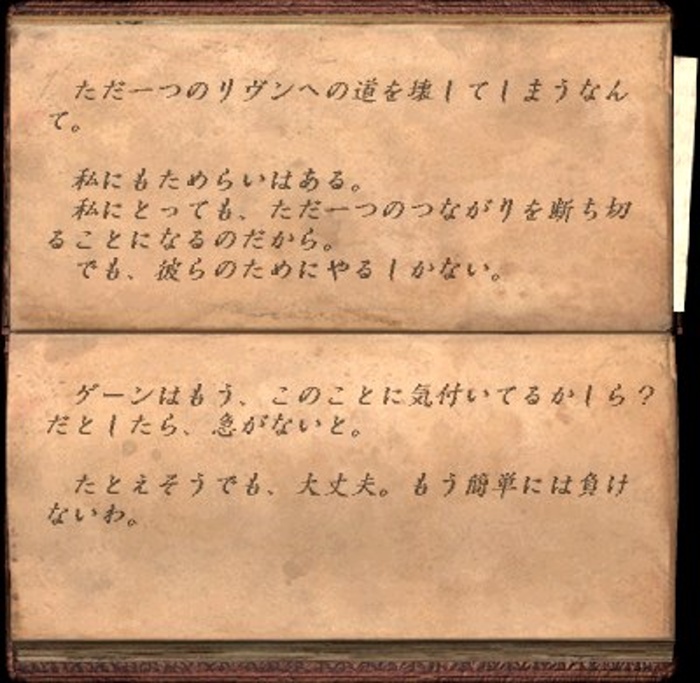 ただ一つのリヴンへの道を壊してしまうなん
て。
私にもためらいはある。
私にとっても、ただ一つのつながりを断ち切
ることになるのだから。
でも、彼らのためにやるしかない。
ゲーンはもう、このことに気付いてるかしら?
だとしたら、急がないと。
たとえそうでも、大丈夫。もう簡単には負け
ないわ。